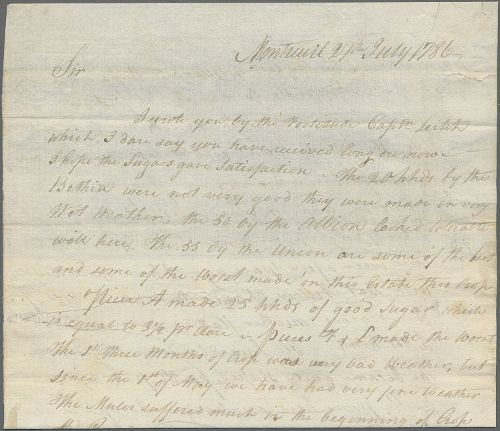 Montreuil 27th July 1786
Sir
I wrote you by the Captn Leitch
which I dare say you have received long ere now
I hope the Sugars gave Satisfaction. The 20 hhds by the
Bethia were not very good they were made in very
Wet Weather, the 30 by the Albion looked tolerable
well here, The 35 by the Union are some of the best
and some of the Worst made on this Estate this Crop
Piece A made 25 hhds of good Sugar which
is equal to 3½ pr acre Pieces F & L made the Worst
The 1st three Months of Crop was very bad Weather, but
since the 1st of May we have had very fine Weather
The Mules suffered much in the beginning of Crop